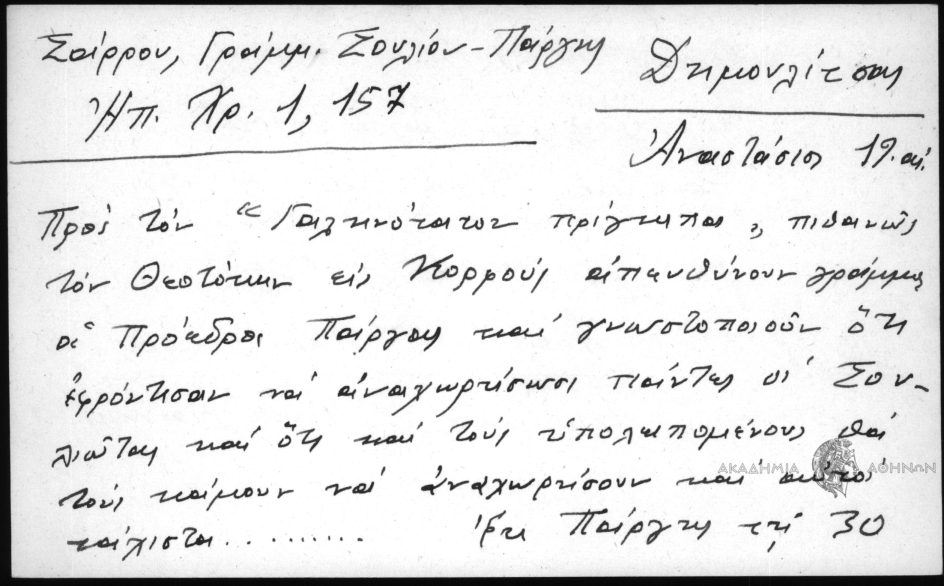 Σάρρου, Γράμμ. Σουλίου - Πάργης
Ἠπ. Χρ. 1, 157
Δημουλίτσας
Ἀναστάσιος 19. αἰ.
Πρὸς τὸν "Γαληνότατον πρίγκιπα", πιθανῶς
τὸν Θεοτόκην εἰς Κορφοὺς ἀπευθύνουν γράμμα
οἱ Πρόεδροι Πάργας καὶ γνωστοποιοῦν ὅτι
ἐφρόντισαν νὰ ἀναχωρήσωσι πάντες οἱ Σου-
λιῶται καὶ ὅτι καὶ τοὺς ὑπολειπομένους θὰ
τοὺς κάμουν νὰ ἀναχωρήσουν καὶ αὐτοὶ
τάχιστα.......... Ἐκ Πάργης τῇ 30
ΑΚΑΔΗΜΙΑ ΑΘΗΝΩΝ